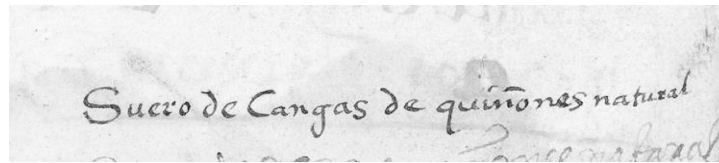 Suero de Cangas de quiñones natural